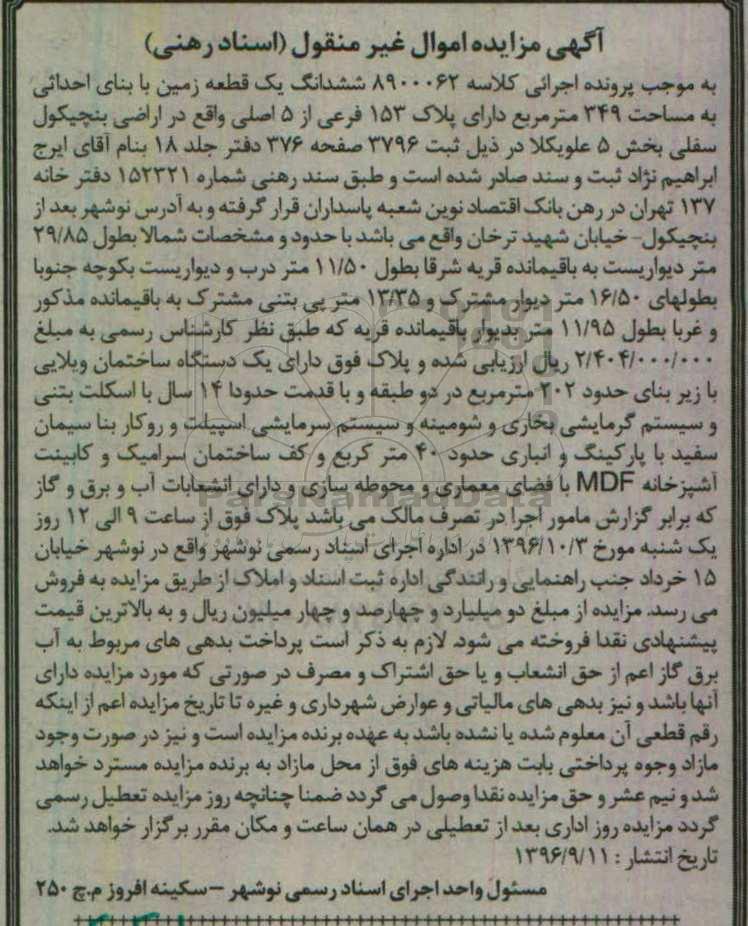 آگهی مزایده اموال غیر منقول (اسناد رهنی)
به موجب پرونده اجرائی کلاسه ۸۹۰۰۰۶۲ ششدانگ یک قطعه زمین با بنای احداثی
به مساحت ۳۴۹ مترمربع دارای پلاک ۱۵۳ فرعی از ۵ اصلی واقع در اراضی بنجیکول
سفلی بخش ۵ علویکلا در ذیل ثبت ۳۷۹۶ صفحه ۳۷۶ دفتر جلد ۱۸ بنام آقای ایرج
ابراهیم نژاد ثبت و سند صادر شده است و طبق سند رهنی شماره ۱۵۲۳۲۱ دفتر خانه
۱۳۷ تهران در رهن بانک اقتصاد نوین شعبه پاسداران قرار گرفته و به آدرس نوشهر بعد از
بنجیکول- خیابان شهید ترخان واقع می باشد با حدود و مشخصات شمالا بطول ۲۹/۸۵
متر دیواریست به باقیمانده قریه شرقا بطول ۱۱/۵۰ متر درب و دیواریست بکوچه جنوبا
بطولهای ۱۶/۵۰ متر دیوار مشترک و ۱۳/۳۵ متر پی بتنی مشترک به باقیمانده مذکور
و غربا بطول ۱۱/۹۵ متر بدیوار باقیمانده قریه که طبق نظر کارشناس رسمی به مبلغ
۲/۴۰۴/۰۰۰/۰۰۰ ریال ارزیابی شده و پلاک فوق دارای یک دستگاه ساختمان ویلایی
با زیر بنای حدود ۲۰۲ مترمربع در دو طبقه و با قدمت حدودا ۱۴ سال با اسکلت بتنی
و سیستم گرمایشی بخاری و شومینه و سیستم سرمایشی اسپیلت و روکار بنا سیمان
سفید با پارکینگ و انباری حدود ۴۰ متر کربع و کف ساختمان سرامیک و کابینت
آشپزخانه MDF با فضای معماری و محوطه سازی و دارای انشعابات آب و برق و گاز
که برابر گزارش مامور اجرا در تصرف مالک می باشد پلاک فوق از ساعت ۹ الی ۱۲ روز
یک شنبه مورخ ۱۳۹۶/۱۰/۳ در اداره اجرای اسناد رسمی نوشهر واقع در نوشهر خیابان
۱۵ خرداد جنب راهنمایی و رانندگی اداره ثبت اسناد و املاک از طریق مزایده به فروش
می رسد. مزایده از مبلغ دو میلیارد و چهارصد و چهار میلیون ریال و به بالاترین قیمت
پیشنهادی نقدا فروخته می شود. لازم به ذکر است پرداخت بدهی های مربوط به آب
برق گاز اعم از حق انشعاب و یا حق اشتراک و مصرف در صورتی که مورد مزایده دارای
آنها باشد و نیز بدهی های مالیاتی و عوارض شهرداری و غیره تا تاریخ مزایده اعم از اینکه
رقم قطعی آن معلوم شده یا نشده باشد به عهده برنده مزایده است و نیز در صورت وجود
مازاد وجوه پرداختی بابت هزینه های فوق از محل مازاد به برنده مزایده مسترد خواهد
شد و نیم عشر و حق مزایده نقدا وصول می گردد ضمنا چنانچه روز مزایده تعطیل رسمی
گردد مزایده روز اداری بعد از تعطیلی در همان ساعت و مکان مقرر برگزار خواهد شد.
تاریخ انتشار : ۱۳۹۶/۹/۱۱
مسئول واحد اجرای اسناد رسمی نوشهر –سکینه افروز م.چ ۲۵۰
ParsNamadData